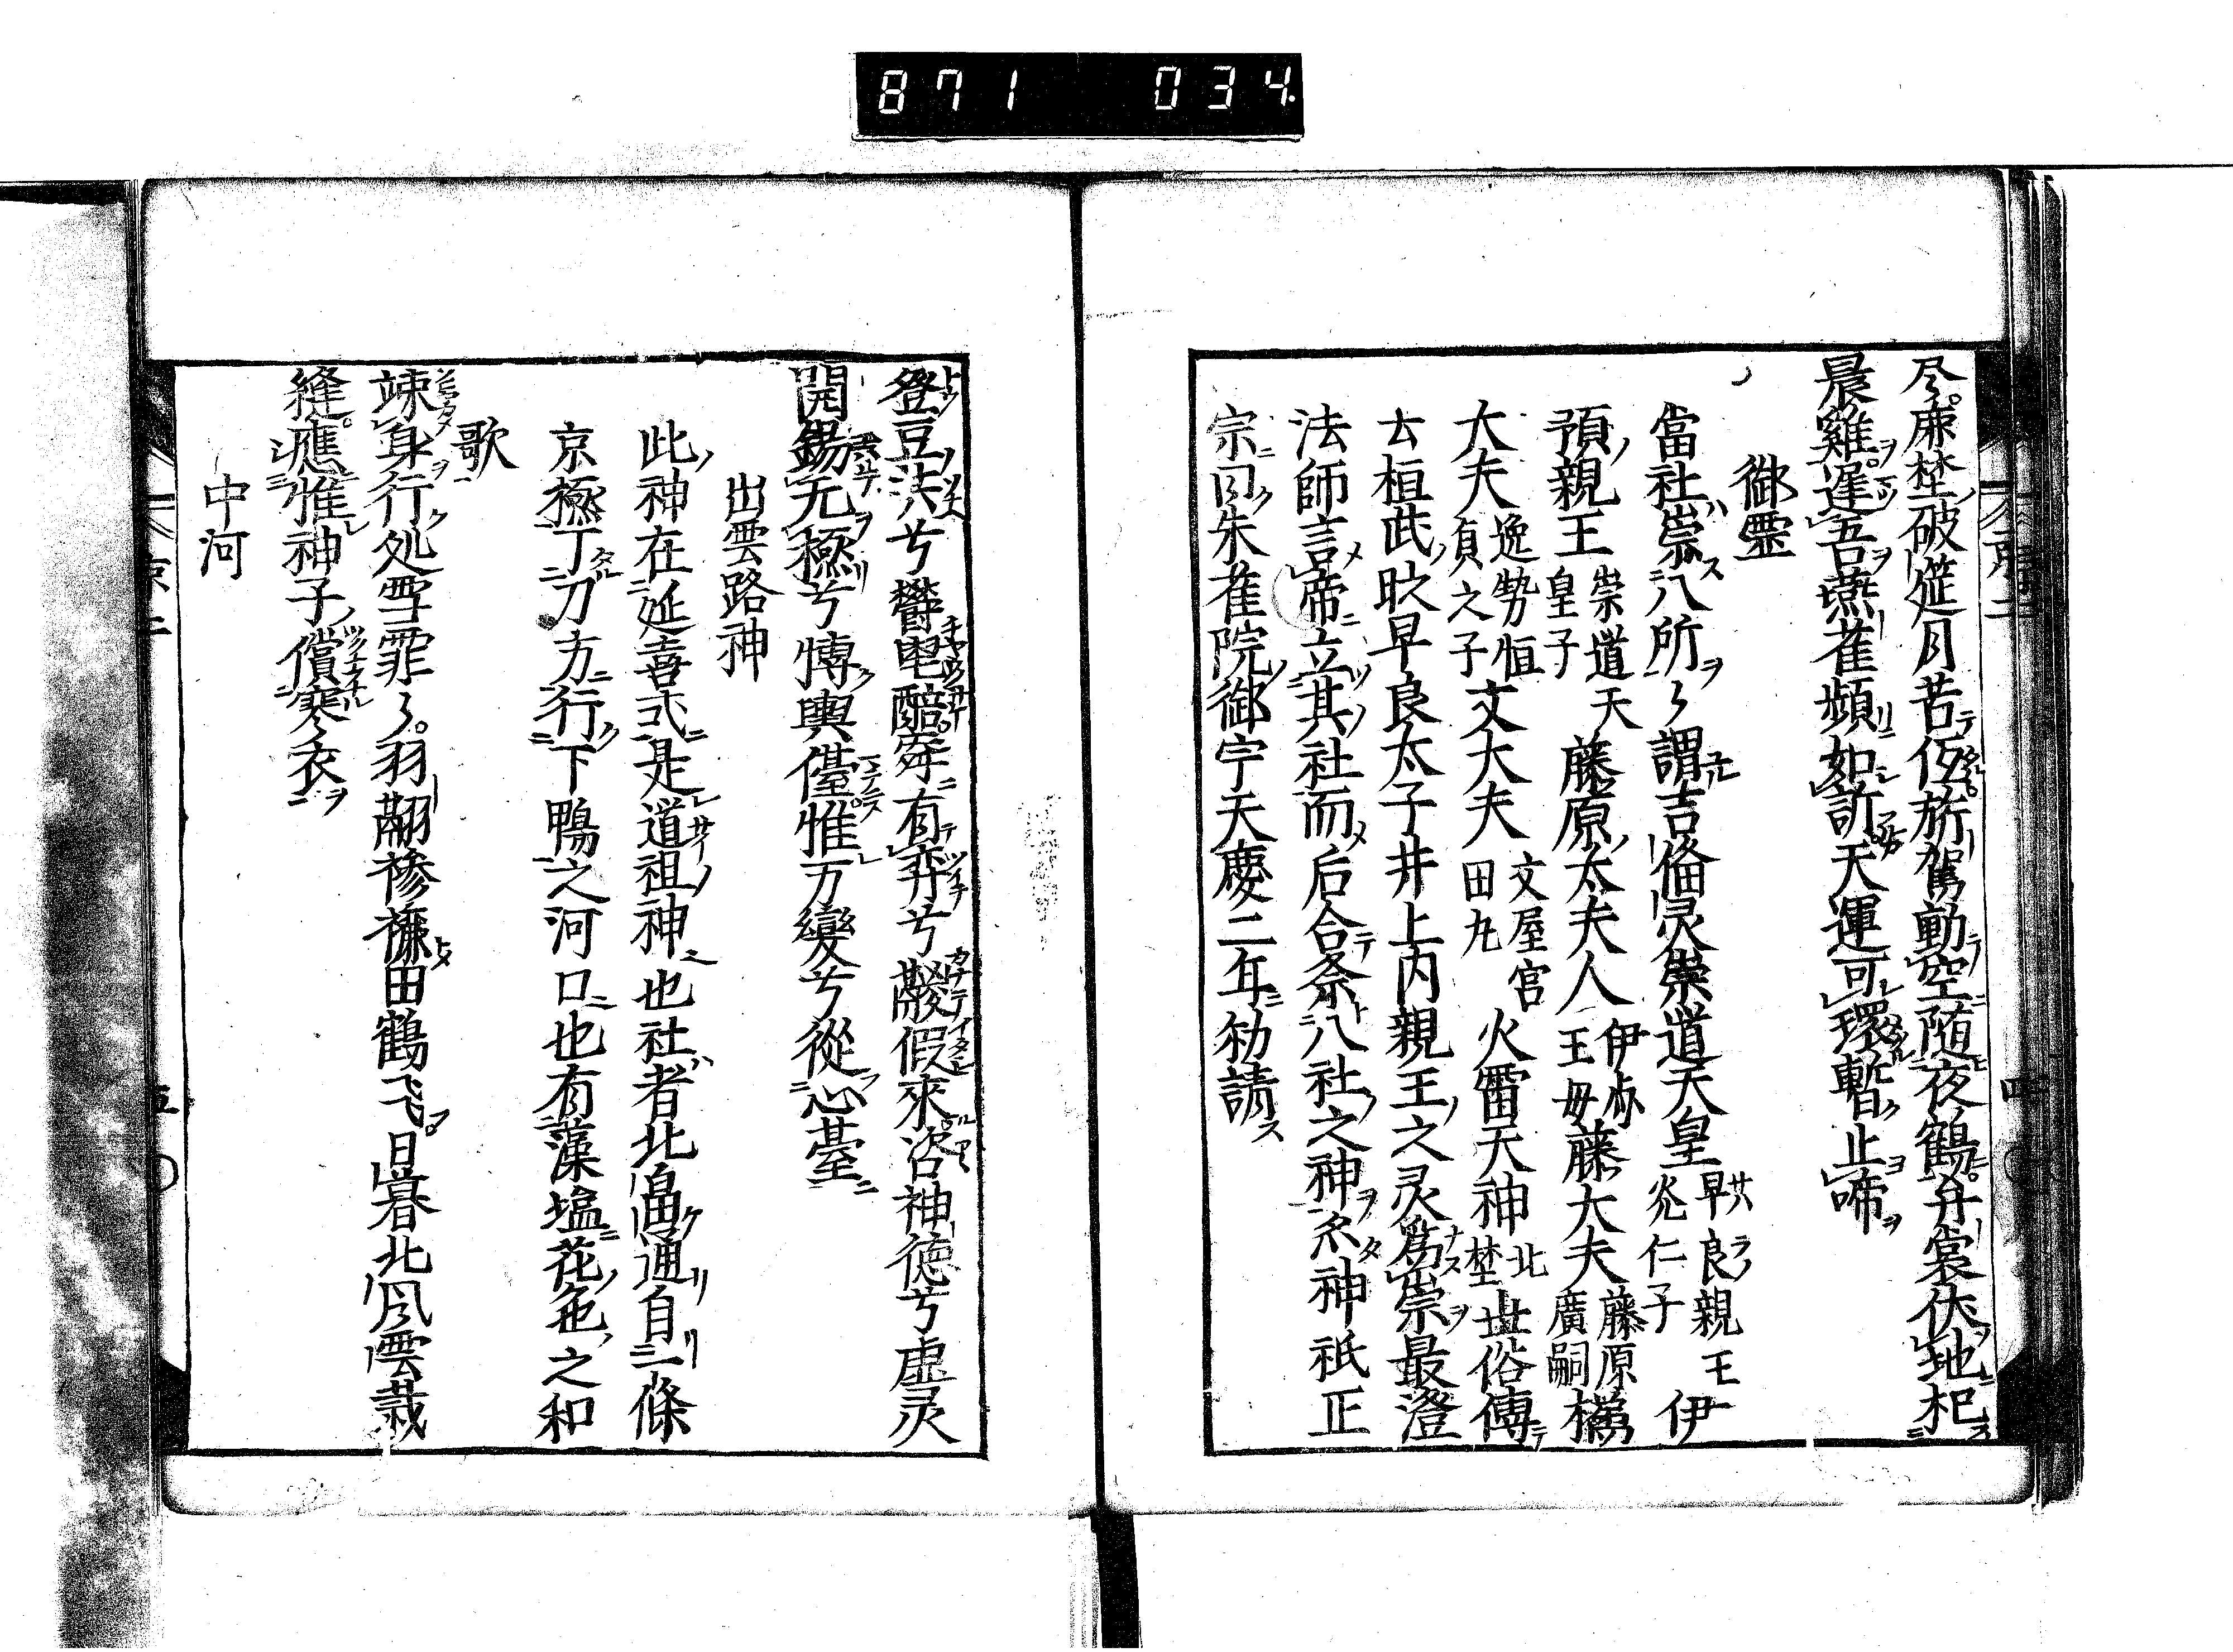 871 034.
尽庶埜破筵月苦伍旂駕動空随夜鶴弁裳伏地杞
晨雞遅吾燕雀頻如訴天運可環暫止啼
御霊
當社崇八所〻謂吉備灵崇道天皇 早良親王 光仁子 伊
預親王 崇道天 皇子 藤原太夫人 伊豫 王母 藤大夫 藤原 廣嗣 橘
大夫 逸勢恒 貞之子 文大夫 文屋宮 田丸 火雷天神 北 埜 世俗傳
云桓武欤早良太子井上内親王之灵爲崇最澄
法師言帝立其社而后合祭八社之神爲神祇正
宗曰朱雀院御宇天慶二年勅請
登豆法兮鬱鬯醅
有弈兮鬷假來咨神徳兮虚灵
開錫无極兮愽輿儓惟万變兮從心臺
出雲路神
此神在延喜式是道祖神也社者北畠通自二條
京極丁刀方行下鴨之河口也有藻塩花亀之和
歌
竦身行処雪霏〻羽翮襂襹田鶴飞日暮北风雲裁
縫應惟神子償寒衣
中河